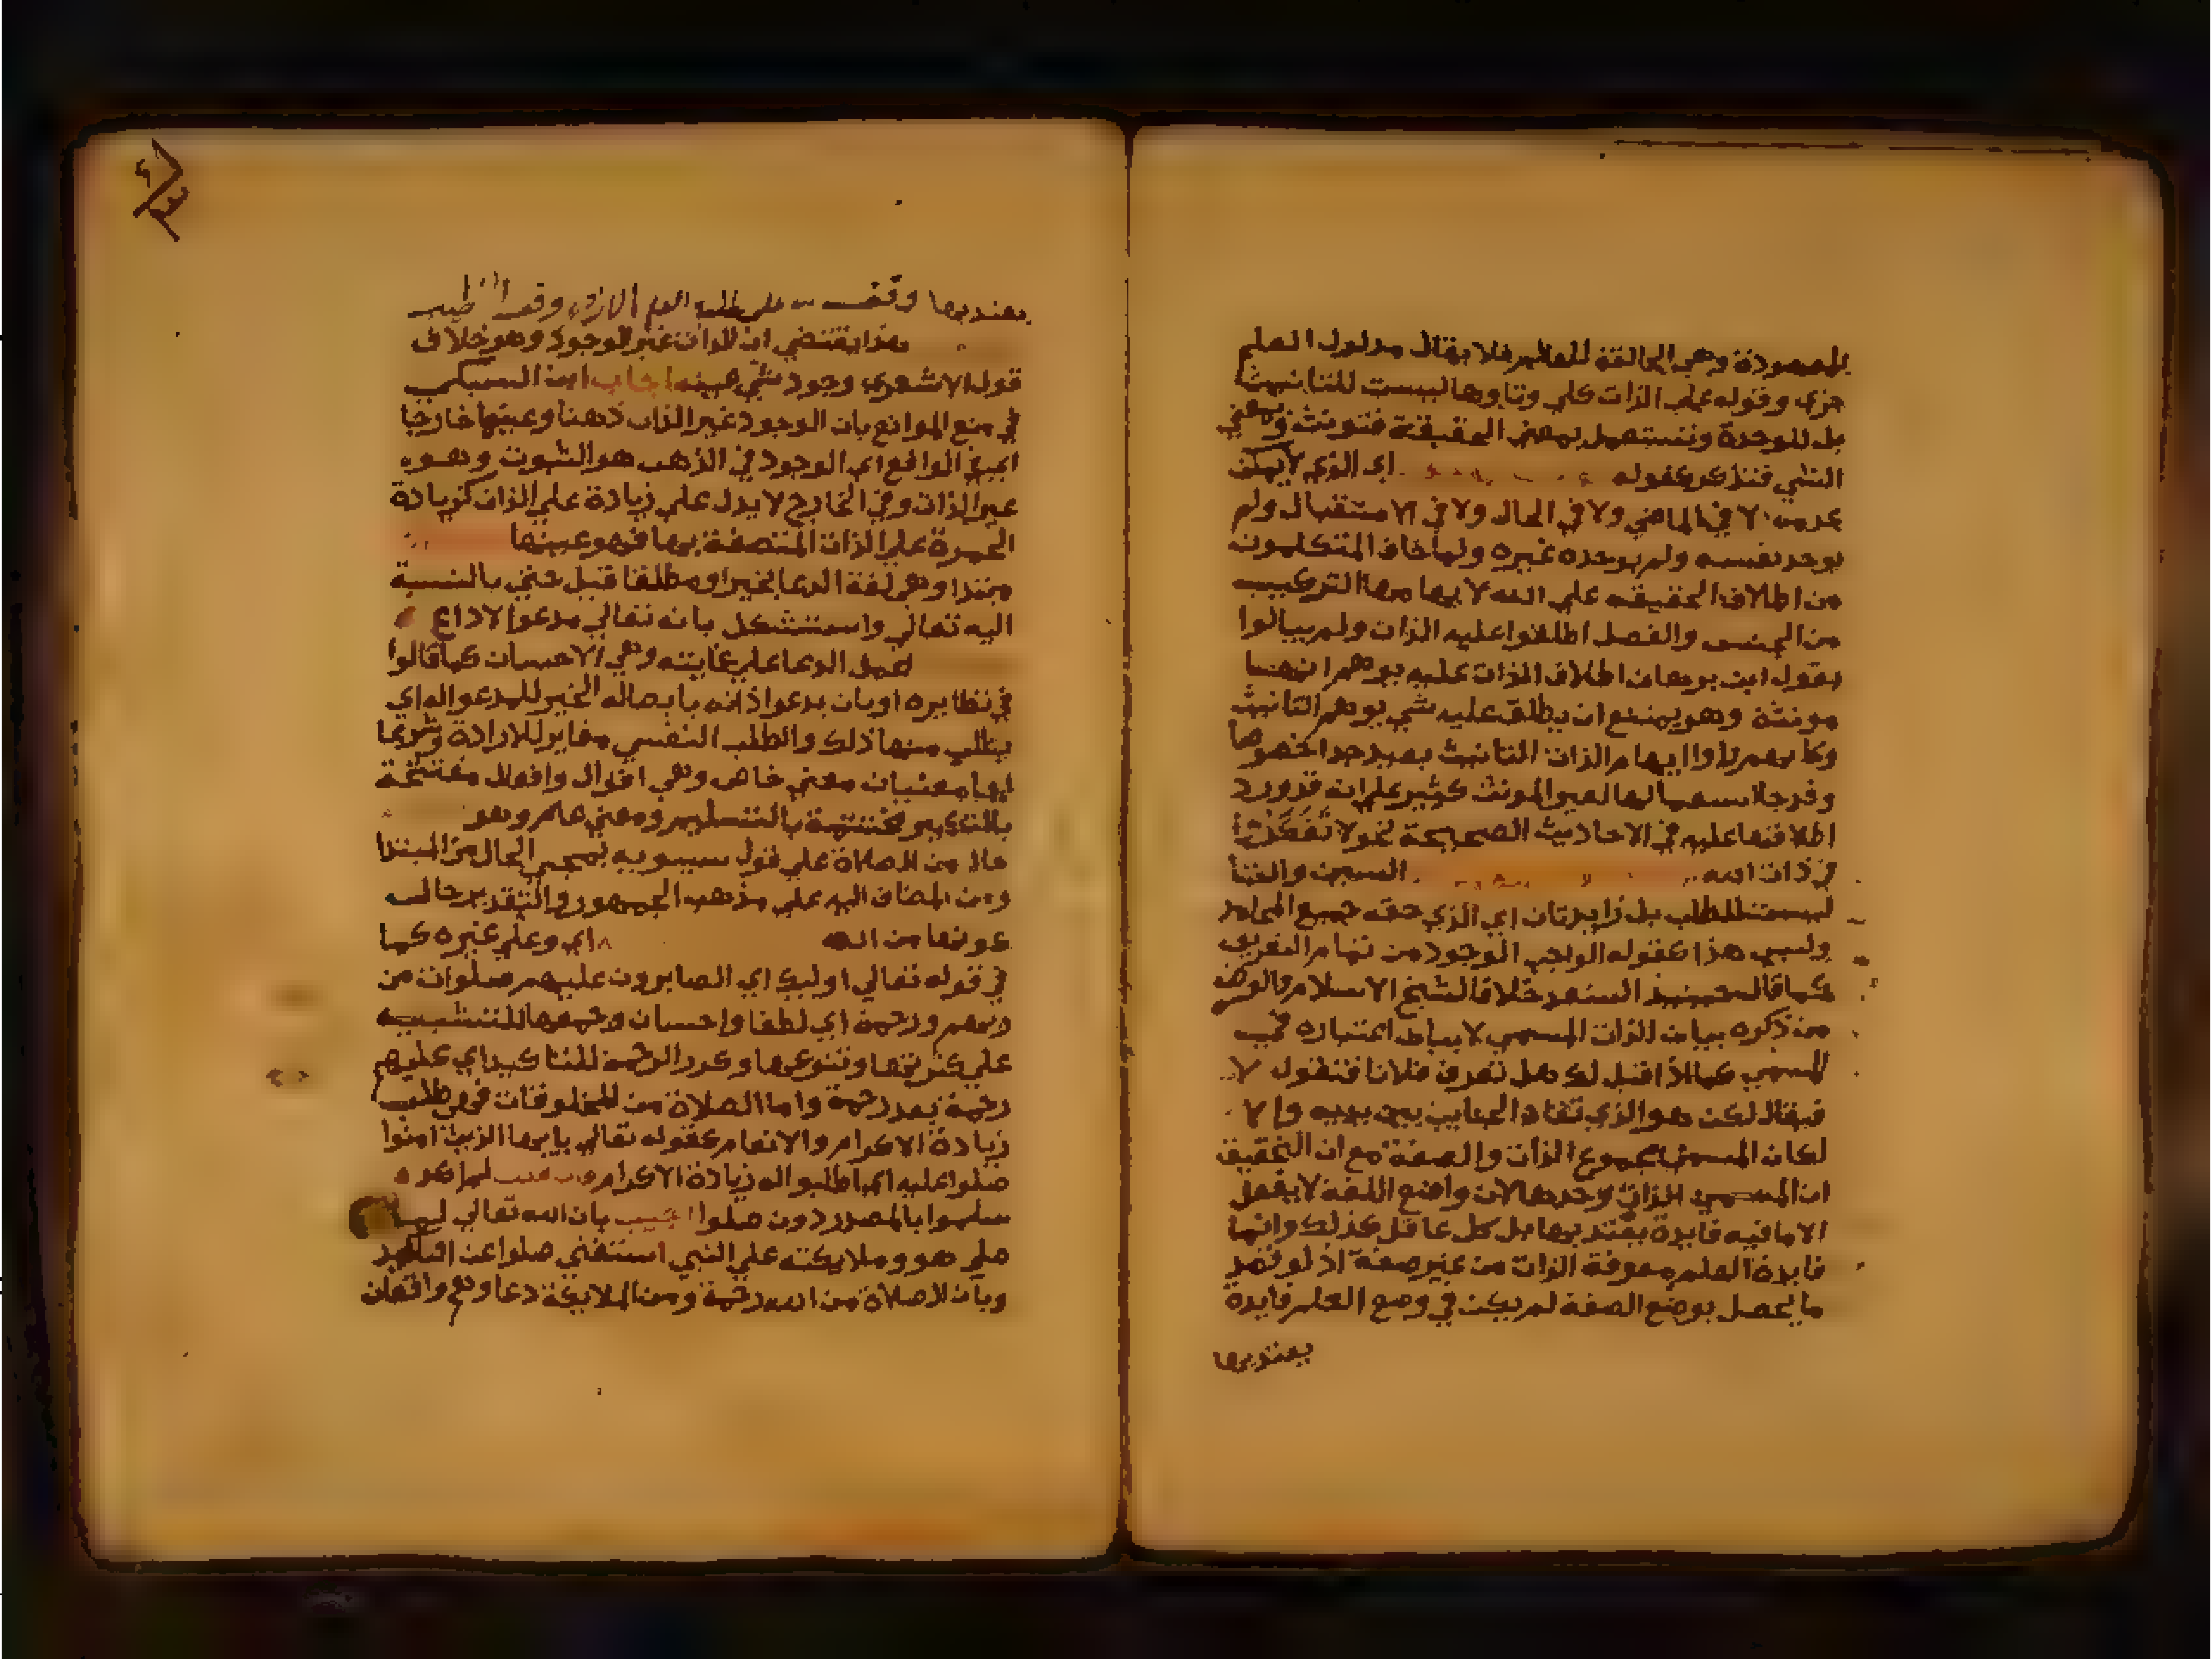 المعهودة وهي الخالقة للعالم فلا يقال مدلول العلم
جزي وقوله علي الذات كلي وتاوها ليست للتانيث
بل للوحدة وتستعمل بمعني الحقيقة فتونث وبمعني
الشي فتذكر كقوله اي الذي لا يمكن
عدمه لا في الماضي ولا في الحال ولا في الاستقبال ولم
يوجد نفسه ولم يوجده غيره ولما خاف المتكلمون
من اطلاق الحقيقه علي الله لايهامها التركيب
من الجنس والفصل اطلقوا عليه الذات ولم يبالوا
بقول ابن برهان اطلاق الذات عليه يوهم انها
مونثة وهو يمتنع ان يطلق عليه شي يوهم التانيث
وكانهم راوا ايهام الذات التانيث بعيد جدا خصوصا
وقد جا استعمالها لغير المونث كثير علي انه قد ورد
اطلاقها عليه في الاحاديث الصحيحة نحو لا تفكروا
في ذات الله السين والتا
ليست للطلب بل زايدتان اي الذي حقه جميع المحامد
وليس هذا كقوله الواجب الوجود من تمام التعريف
كما قال السعد خلافا لشيخ الاسلام والغرض
من ذكره بيان الذات المسمي لا بيان اعتباره في
المسمي كما اذا قيل لك هل تعرف فلانا فتقول لا
فيقال لك هو الذي يديه والا
لكان المسمي مجموع الذات والصفة مع ان التحقيق
ان المسمي الذات وحدها لان واضع اللغة لا يفعل
الا ما فيه فايدة يعتد بها بل كل عاقل كذلك وانما
فايدة العلم معرفة الذات من غير صفة اذ لو قصد
ما يحصل بوضع الصفة لم يكن في وضع العلم فايدة
يعتد بها
يعتد بها وقف علي طلبة العلم
هذا يقتضي ان الذات غير الوجود وهو خلاف
قول الاشعري وجود شي عينه اجاب ابن السبكي
في منع الموانع بان الوجود غير الذات ذهنا وعينها خارجا
اي في الواقع اي الوجود في الذهب هو الثبوت وهو
غير الذات وفي الخارج لا يدل علي زيادة علي الذات كزيادة
الحمرة علي الذات المتصفة بها فهو عينها
مبتدا وهي لغة الدعا بخير او مطلقا قيل حتي بالنسبة
اليه تعالي واستشكل بانه تعالي مدعوا لا داع
الدعا علي غايته وهي الاحسان كما قالوا
في نظايره او بان يدعوا ذاته بايصاله الخير للمدعو اله اي
يطلب منها ذلك والطلب النفسي مغاير للارادة وشرعا
لها معنيان معني خاص وهي اقوال وافعال مفتتحة
بالتكبير مختتمة بالتسليم ومعني عام وهو
حال من الصلاة علي قول سيبويه بمجي الحال من المبتدا
ومن المضاف اليه علي مذهب الجمهور والتقدير حالت
كونها من الله اي وعلي غيره كما
في قوله تعالي اوليك اي الصابرون عليهم صلوات من
ربهم ورحمة اي لطفا واحسان وجمعها للتنبيه
علي كثرتها وتنوعها وكرر الرحمة للتاكيد اي عليهم
رحمة بعد رحمة واما الصلاة من المخلوقات فهي طلب
زيادة الاكرام والانعام كقوله تعالي يايها الذين امنوا
صلوا عليه اي اطلبوا له زيادة الاكرام لم اكد
سلموا بالمصدر دون صلوا اجيب بان الله تعالي لما
صلي هو وملايكته علي النبي استغني صلوا عن التاكيد
وبان الصلاة من الله رحمة ومن الملايكة دعا وهو واقعان